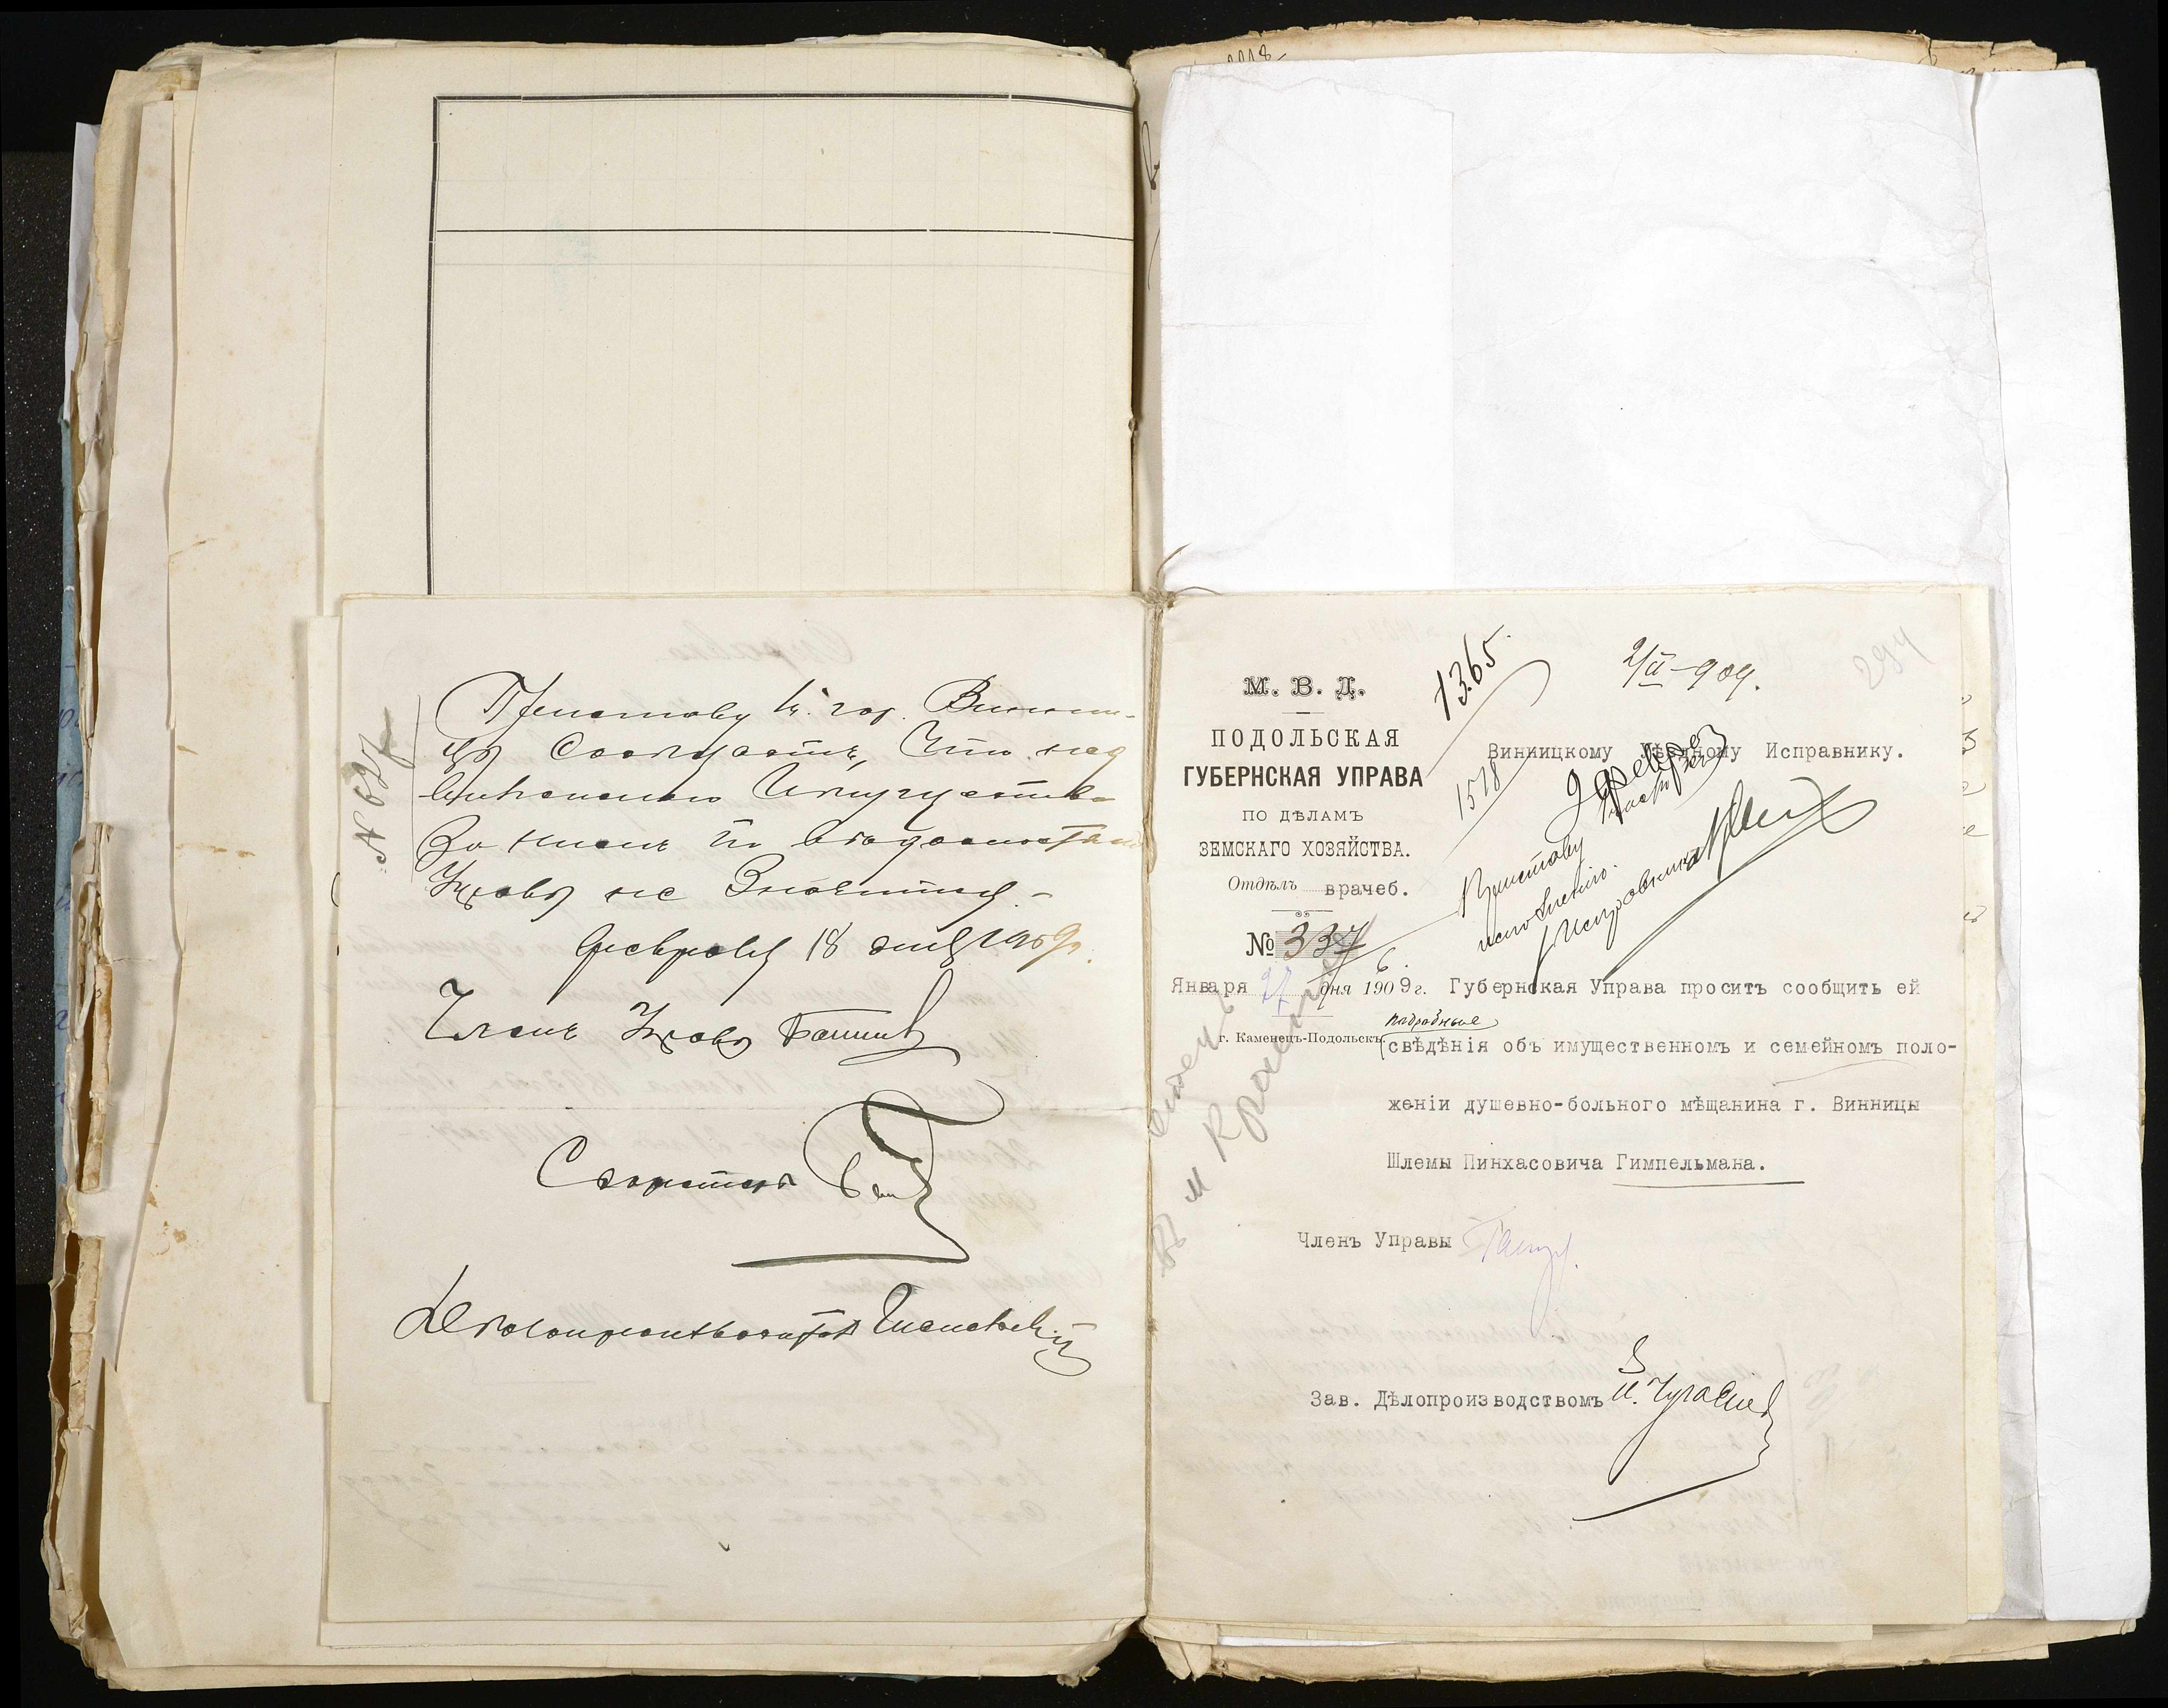 № 627
Приставу м. гор. Винни-
цы Сообщаетъ, что нед
вижимаго Имущества
За нимъ по вѣдомостямъ
Управы не Значится.-
Февраля 18 дня 1909 г.
Членъ Управы
Секретарь
Дѣлопроизводитель
1365.
2/II-909.
294
М. В. Д.
ПОДОЛЬСКАЯ
ГУБЕРНСКАЯ УПРАВА
ПО ДѢЛАМЪ
ЗЕМСКАГО ХОЗЯЙСТВА.
Отдѣлъ врачеб.
№ 337
Января 27 дня 1909 г.
г. Каменецъ-Подольскъ.
Винницкому Уѣздному Исправнику.
1578
9 февраля
Приставу
исполненію.
Исправникъ
Губернская Управа проситъ сообщить ей
подробныя
свѣдѣнія объ имущественномъ и семейномъ поло-
женіи душевно-больного мѣщанина г. Винницы
Шлемы Пинхасовича Гимпельмана.
Членъ Управы
Зав. Дѣлопроизводствомъ